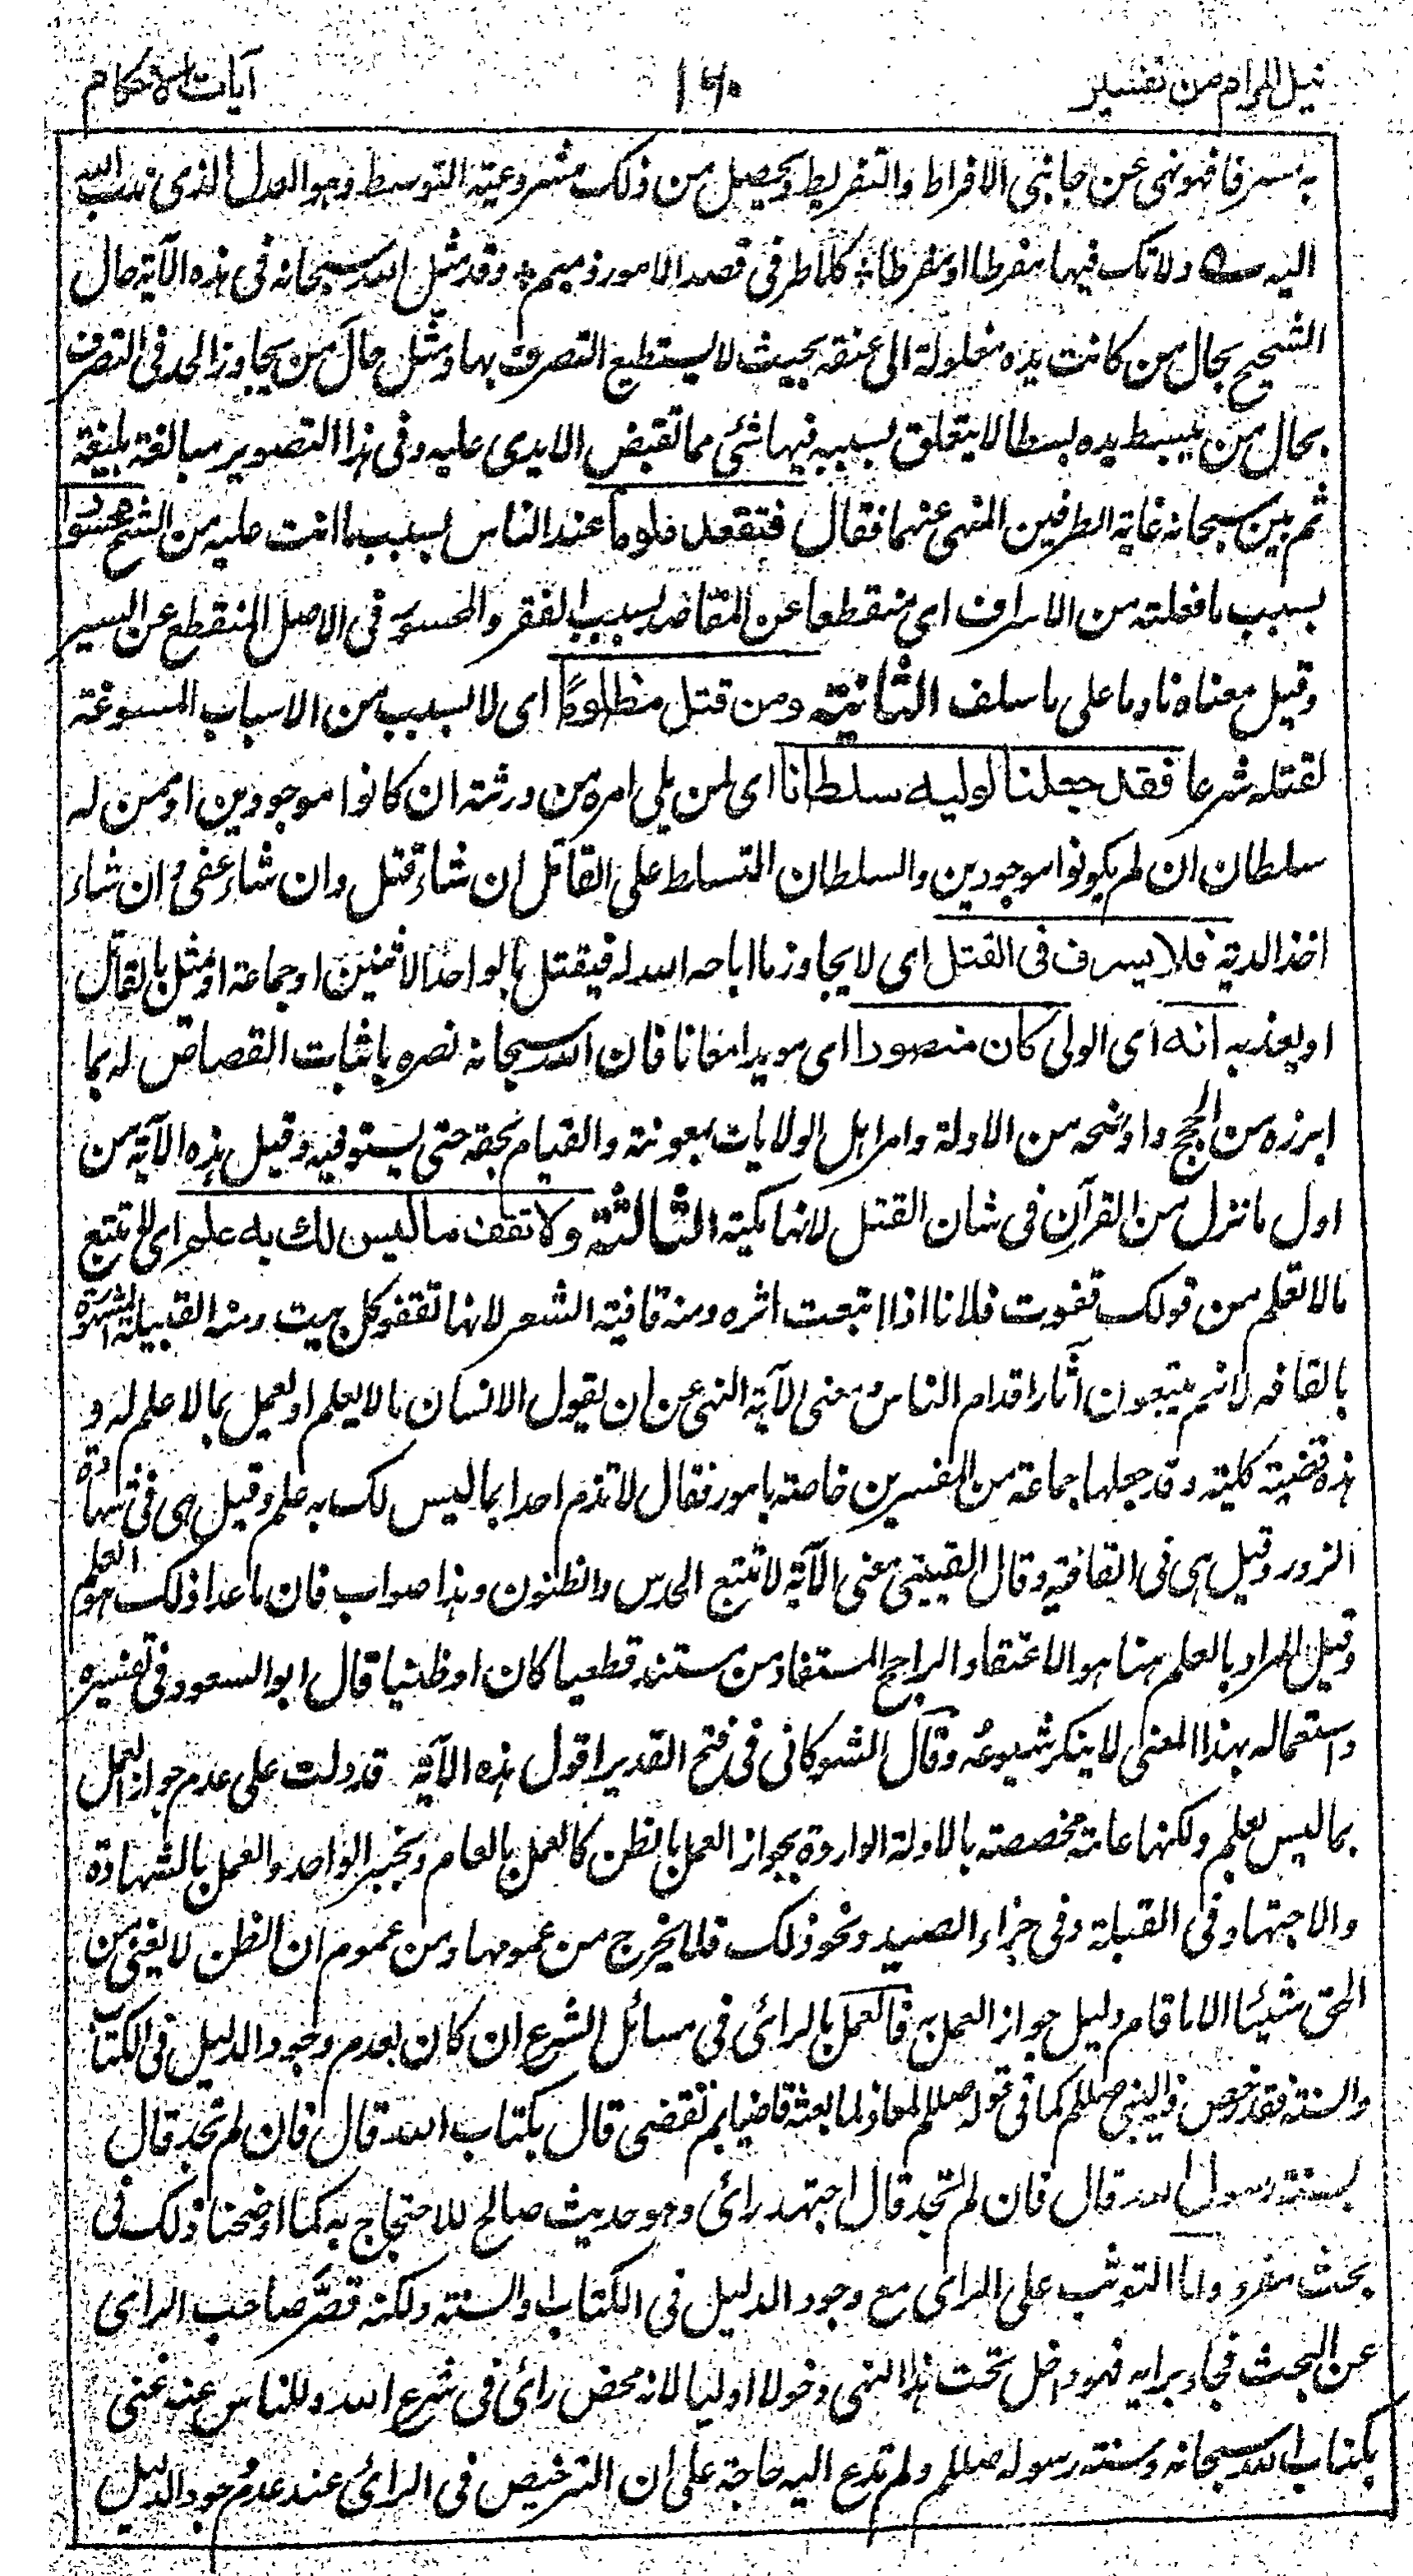 نيل المرام من تفسير ١٦٠ آيات الاحكام
به مسرفا فهو نهى عن جانبى الافراط والتفريط ويحصل من ذلك مشروعية التوسط وهو العدل الذى ندب الله
اليه ے ولا تك فيها مفرطا او مفرطا ؛ كلا طرفى قصد الامور ذميم ؛ وقد مثل الله سبحانه فى هذه الآية حال
الشحيح بحال من كانت يده مغلولة الى عنقه بحيث لا يستطيع التصرف بها ومثل حال من يجاوز الحد فى التصرف
بحال من يبسط يده بسطا لا يتعلق بسببه فيها شئ مما تقبض الايدى عليه وفى هذا التصوير مبالغة بليغة
ثم بين سبحانه غاية الطرفين المنهى عنهما فقال فتقعد ملوما عند الناس بسبب ما انت عليه من الشح محسورا
بسبب ما فعلته من الاسراف اى منقطعا عن المقاصد بسبب الفقر والمحسور فى الاصل المنقطع عن السير
وقيل معناه نادما على ما سلف الثانية ومن قتل مظلوما اى لا بسبب من الاسباب المسوغة
لقتله شرعا فقد جعلنا لوليه سلطانا اى لمن يلى امره من ورثته ان كانوا موجودين او ممن له
سلطان ان لم يكونوا موجودين والسلطان التسلط على القاتل ان شاء قتل وان شاء عفى وان شاء
اخذ الدية فلا يسرف فى القتل اى لا يجاوز ما اباحه الله له فيقتل بالواحد الاثنين او جماعة او يمثل بالقاتل
او يعذبه انه اى الولى كان منصورا اى مويدا معانا فان الله سبحانه نصره باثبات القصاص له بما
ابرزه من الحجج واوضحه من الادلة وامر اهل الولايات بمعونته والقيام بحقه حتى يستوفيه وقيل هذه الآية من
اول ما نزل من القرآن فى شان القتل لانها مكية الثالثة ولا تقف ما ليس لك به علم اى لا تتبع
ما لا تعلم من قولك قفوت فلانا اذا اتبعت اثره ومنه قافية الشعر لانها تقفو كل بيت ومنه القبيلة المشهورة
بالقافه لانهم يتبعون آثار اقدام الناس ومعنى الآية النهى عن ان يقول الانسان ما لا يعلم او يعمل بما لا علم له و
هذه قضية كلية وقد جعلها جماعة من المفسرين خاصة بامور فقال لا تذم احدا بما ليس لك به علم وقيل هى فى شهادة
الزور وقيل هى فى القافية وقال القتيبى معنى الآية لا تتبع الحدس والظنون وهذا صواب فان ما عدا ذلك هو العلم
وقيل المراد بالعلم هنا هو الاعتقاد الراجح المستفاد من مستند قطعيا كان او ظنيا قال ابو السعود فى تفسيره
واستعماله بهذا المعنى لا ينكر شيوعه وقال الشوكانى فى فتح القدير اقول هذه الآية قد دلت على عدم جواز العمل
بما ليس بعلم ولكنها عامة مخصصة بالادلة الواردة بجواز العمل بالظن كالعمل بالعام وبخبر الواحد والعمل بالشهادة
والاجتهاد فى القبلة وفى جزاء الصيد ونحو ذلك فلا يخرج من عمومها ومن عموم ان الظن لا يغنى من
الحق شيئا الا ما قام دليل جواز العمل به فالعمل بالرائ فى مسائل الشرع ان كان بعدم وجود الدليل فى الكتاب
والسنة فقد رخص فيه النبى صللم كما فى قوله صللم لمعاذ لما بعثه قاضيا بم تقضى قال بكتاب الله قال فان لم تجد قال
بسنة رسول الله قال فان لم تجد قال اجتهد رائ وهو حديث صالح للاحتجاج به كما اوضحنا ذلك فى
بحث مفرد واما التوثب على الرائ مع وجود الدليل فى الكتاب او السنة ولكنه قصر صاحب الرائ
عن البحث فجاء برايه فهو داخل تحت هذا النهى دخولا اوليا لانه محض رائ فى شرع الله وللناس عنه غنى
بكتاب الله سبحانه وسنة رسوله صللم ولم تدع اليه حاجة على ان الترخيص فى الرائ عند عدم وجود الدليل